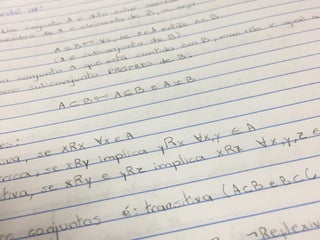 Um conjunto A é dito estar contido
elemento de B, ou seja
A⊆B ↔ ∀x, se x∈A então x∈B
(A é subconjunto de B)
conjunto A que está contido em B, mas não é igual a
subconjunto PRÓPRIO de B:
A⊂B ↔ A⊆B e A≠B
es:
iva, se xRx ∀x∈A
rica, se xRy implica yRx ∀x,y ∈ A
itiva, se xRy e yRz implica xRz ∀x,y,z ∈
conjuntos é: transitiva (A⊂B e B⊂C
¬Reflexiv